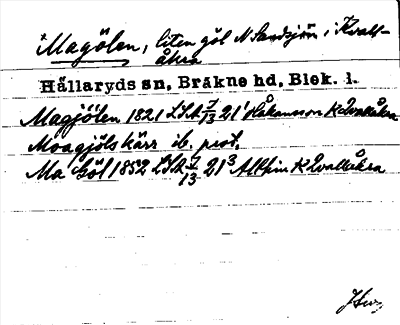 *Magölen, liten göl N Sandsjön i Kvall-
åkra
Hällaryds sn, Bräkne hd, Blek. l.
Magjölen 1821 LSA 7/13 21¹ Håkansson K Qvallåkra
Moagjöls kärr ib. prot.
Ma Göl 1852 LSA 7/13 21³ Althin K Qvallåkra